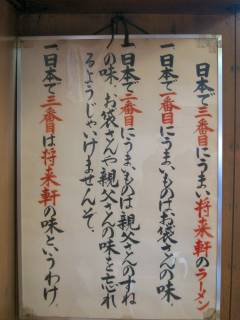 日本で三番目にうまい将来軒のラーメン
一日本で一番目にうまいものはお袋さんの味
一日本で二番目にうまいものは親父さんのすね
の味、お袋さんや親父さんの味を忘れ
るようじゃいけませんぞ。
一日本で三番目は将来軒の味というわけ。